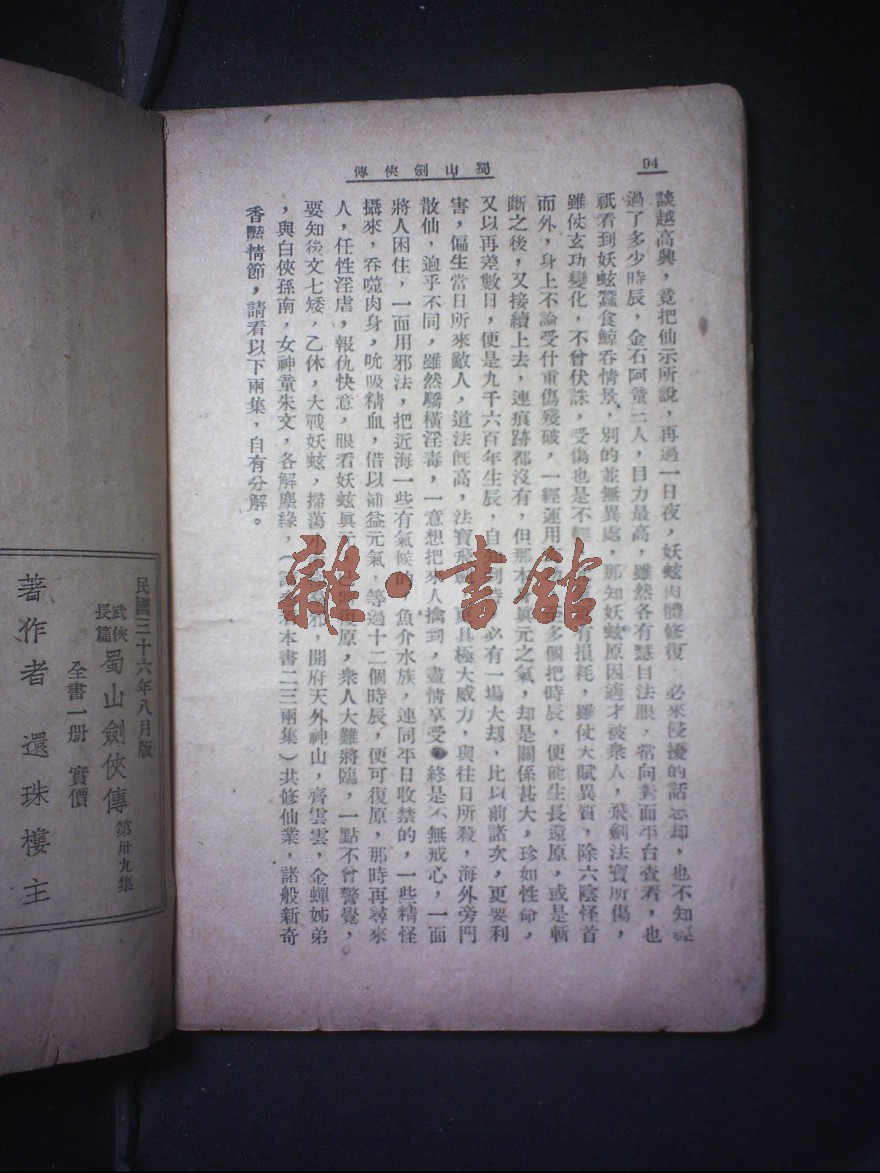 94
蜀山劍俠傳
談越高興，竟把仙示所說，再過一日夜，妖蚿肉體修復 必來侵擾的話忘却，也不知經
過了多少時辰，金石阿童三人，目力最高，雖然各有慧目法眼，常向對面平台查看，也
祇看到妖蚿蠶食鯨吞情景，別的並無異處，那知妖蚿原因適才被衆人，飛劍法寶所傷，
雖仗玄功變化，不曾伏誅，受傷也是不輕 有損耗，雖仗天賦異質，除六陰怪首
而外，身上不論受什重傷殘破，一經運用 至多個把時辰，便能生長還原，或是斬
斷之後，又接續上去，連痕跡都沒有，但那本 眞元之氣，却是關係甚大，珍如性命，
又以再差數日，便是九千六百年生辰，自 到時 必有一場大刼，比以前諸次，更要利
害，偏生當日所來敵人，道法旣高，法寶飛劍 更具極大威力，與往日所殺，海外旁門
散仙，逈乎不同，雖然驕橫淫毒，一意想把來人擒到，盡情享受 終是不無戒心，一面
將人困住，一面用邪法，把近海一些有氣候的 魚介水族，連同平日收禁的，一些精怪
攝來，吞噬肉身，吮吸精血，借以補益元氣，等過十二個時辰，便可復原，那時再尋來
人，任性淫虐，報仇快意，眼看妖蚿眞元 將復原，衆人大難將臨，一點不曾警覺，
要知後文七矮，乙休，大戰妖蚿，掃蕩 邪，開府天外神山，齊雲雲，金蟬姊弟
，與白俠孫南，女神童朱文，各解塵緣，（ 本書二三兩集）共修仙業，諸般新奇
香豔情節，請看以下兩集，自有分解。
民國三十六年八月版
武俠長篇 蜀山劍俠傳 第卅九集
全書一册 實價
著作者 還珠樓主
雜·書館